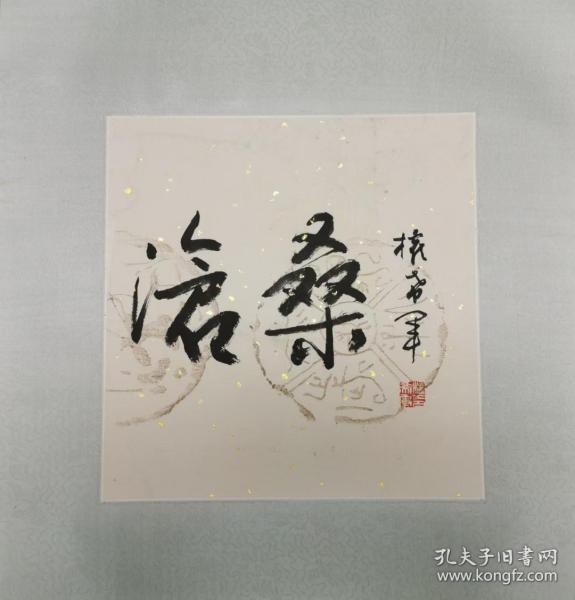 滄桑
權希軍
孔夫子旧书网
www.kongfz.com